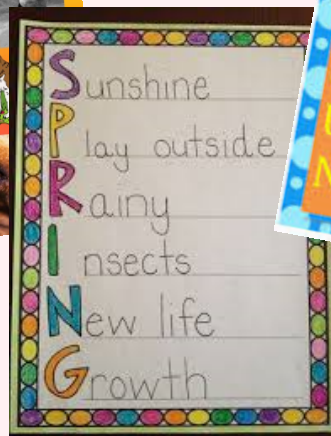 Sunshine
Play outside
Rainy
Insects
New life
Growth